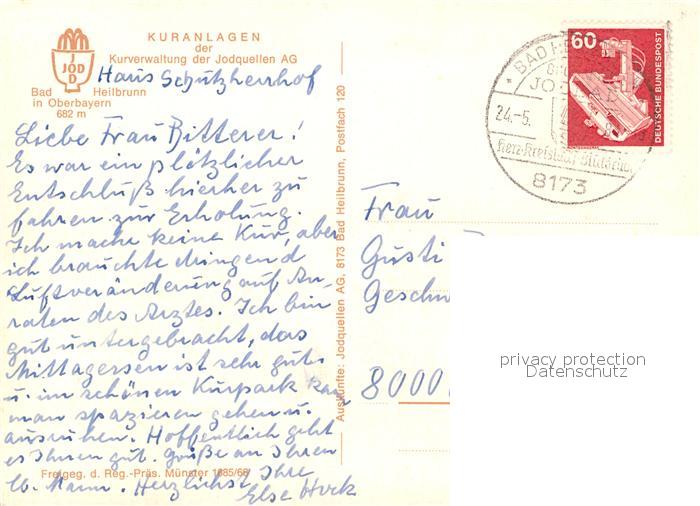 KURANLAGEN
der
Kurverwaltung der Jodquellen AG
JOD
JOD
Bad Heilbrunn
in Oberbayern
682 m
Haus Schutzherrhof
Liebe Frau Bitterer!
Es war ein plötzlicher
Entschluß hierher zu
fahren zur Erholung.
Ich mache keine Kur, aber
ich brauchte dringend
Luftveränderung auf An-
raten des Arztes. Ich bin
gut untergebracht, das
Mittagessen ist sehr gut
u. im schönen Kurpark kann
man spazieren gehen u.
ausruhen. Hoffentlich geht
es Ihnen gut. Grüße an Ihren
lb. Mann. Herzlichst Ihre
Else
Freigeg. d. Reg.-Präs. Münster 1685/68
Auskünfte: Jodquellen AG, 8173 Bad Heilbrunn, Postfach 120
60
DEUTSCHE BUNDESPOST
BAD HE
24.-5.
Herz-Kreislauf
8173
Frau
Gusti
Geschw
8000
privacy protection
Datenschutz